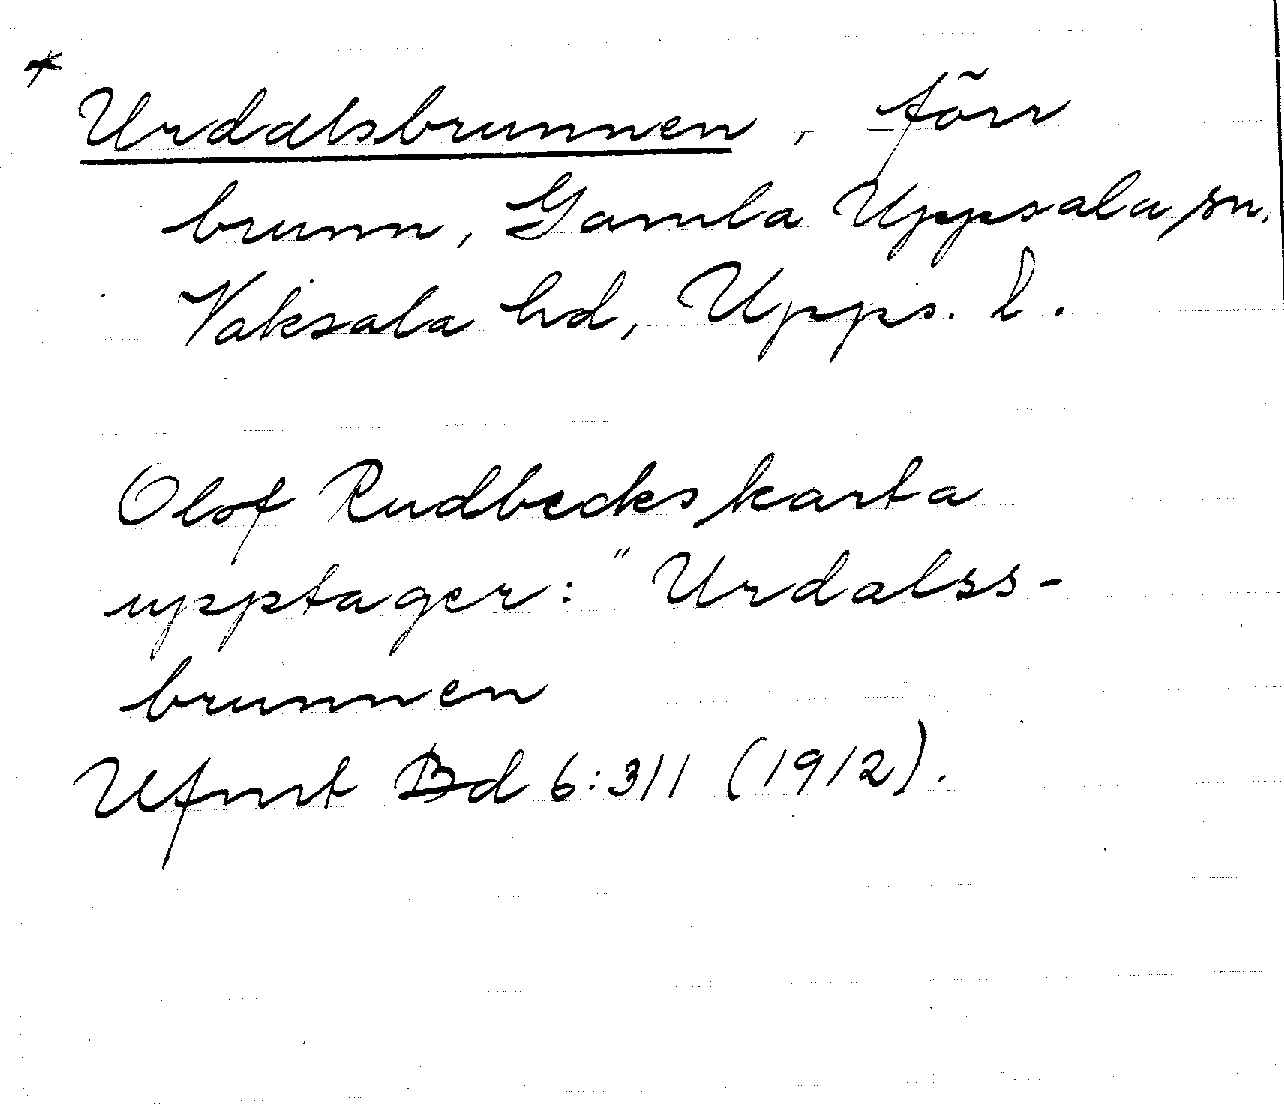 * Urdalsbrunnen, förr
brunn, Gamla Uppsala sn,
Vaksala hd, Upps. l.
Olof Rudbecks karta
upptager: "Urdalss-
brunnen
Ufmt Bd 6:311 (1912).